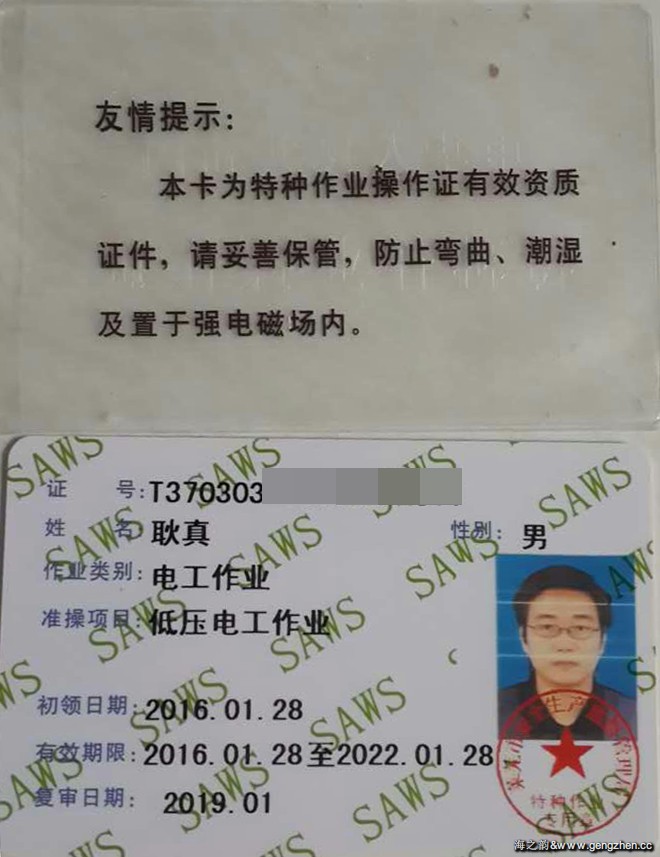 友情提示:
本卡为特种作业操作证有效资质
证件，请妥善保管，防止弯曲、潮湿
及置于强电磁场内。
SAWS
证 号:T370303
姓 名:耿真 性别: 男
作业类别:电工作业
准操项目:低压电工作业
初领日期:2016.01.28
有效期限:2016.01.28至2022.01.28
复审日期: 2019.01
特种作业
专用章
海之韵&www.gengzhen.cc